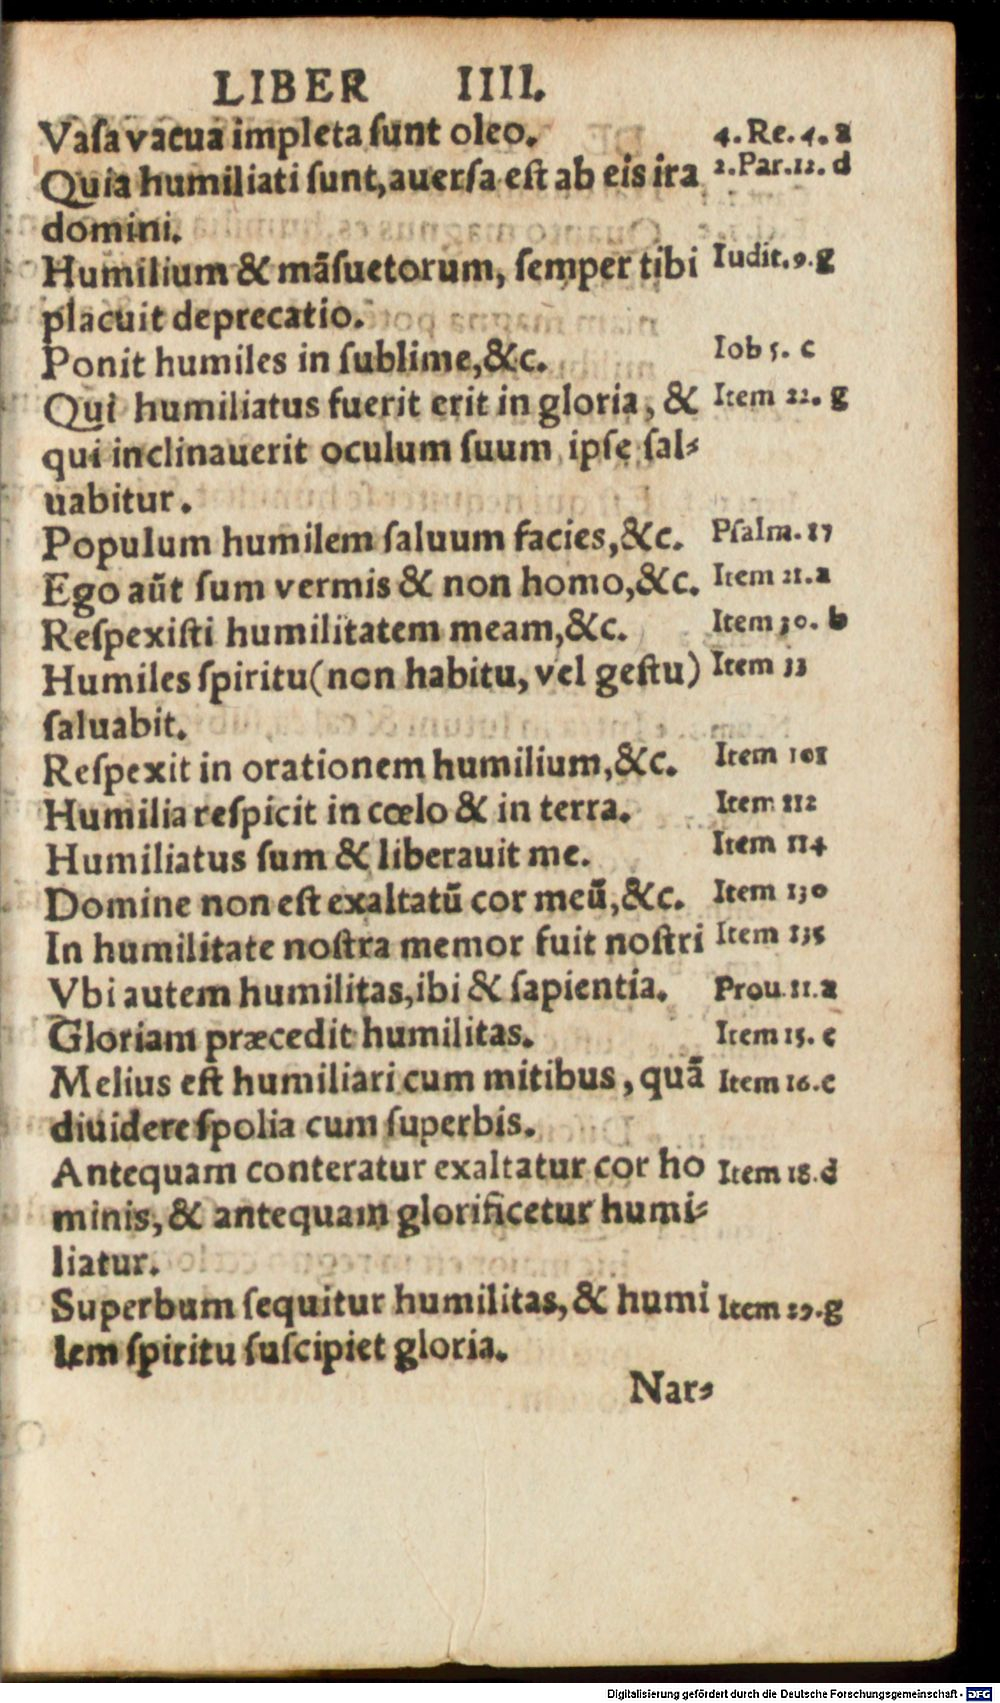 LIBER IIII.
Vaſa vacua impleta ſunt oleo. 4. Re. 4. a
Quia humiliati ſunt, auerſa eſt ab eis ira 2. Par. 12. d
domini.
Humilium & mãſuetorum, ſemper tibi Iudit. 9. g
placuit deprecatio.
Ponit humiles in ſublime, &c. Iob 5. c
Qui humiliatus fuerit erit in gloria, & Item 22. g
qui inclinauerit oculum ſuum ipſe ſal⸗
uabitur.
Populum humilem ſaluum facies, &c. Pſalm. 17
Ego aũt ſum vermis & non homo, &c. Item 21. a
Reſpexiſti humilitatem meam, &c. Item 30. b
Humiles ſpiritu (non habitu, vel geſtu) Item 33
ſaluabit.
Reſpexit in orationem humilium, &c. Item 101
Humilia reſpicit in cœlo & in terra. Item 112
Humiliatus ſum & liberauit me. Item 114
Domine non eſt exaltatũ cor meũ, &c. Item 130
In humilitate noſtra memor fuit noſtri Item 135
Vbi autem humilitas, ibi & ſapientia. Prou. 11. a
Gloriam præcedit humilitas. Item 15. c
Melius eſt humiliari cum mitibus, quã Item 16. c
diuidere ſpolia cum ſuperbis.
Antequam conteratur exaltatur cor ho Item 18. d
minis, & antequam glorificetur humi⸗
liatur.
Superbum ſequitur humilitas, & humi Item 29. g
lem ſpiritu ſuſcipiet gloria.
Nar⸗
Digitalisierung gefördert durch die Deutsche Forschungsgemeinschaft - DFG